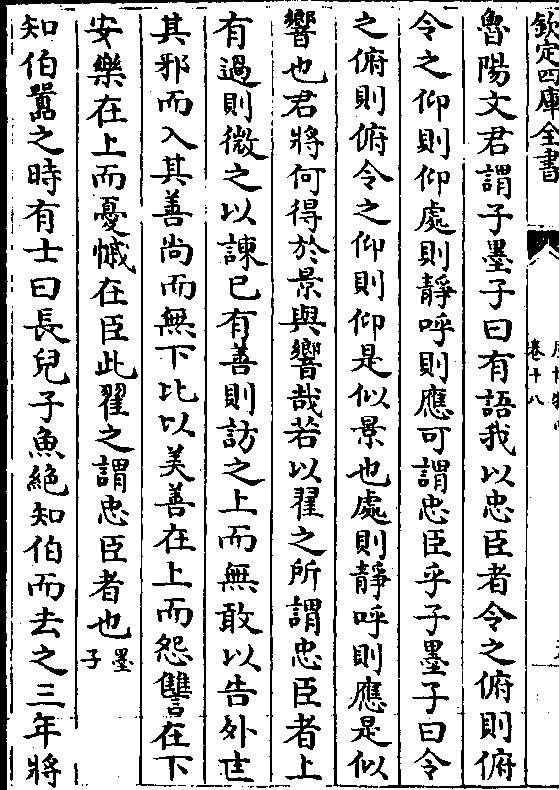 欽定四庫全書
卷十八
魯陽文君謂子墨子曰有語我以忠臣者令之俯則俯
令之仰則仰處則靜呼則應可謂忠臣乎子墨子曰令
之俯則俯令之仰則仰是似景也處則靜呼則應是似
響也君將何得於景與響哉若以翟之所謂忠臣者上
有過則微之以諫已有善則訪之上而無敢以告外匡
其邪而入其善尚而無下比以美善在上而怨讎在下
安樂在上而憂慽在臣此翟之謂忠臣者也墨子
知伯嚚之時有士曰長兒子魚絶知伯而去之三年將